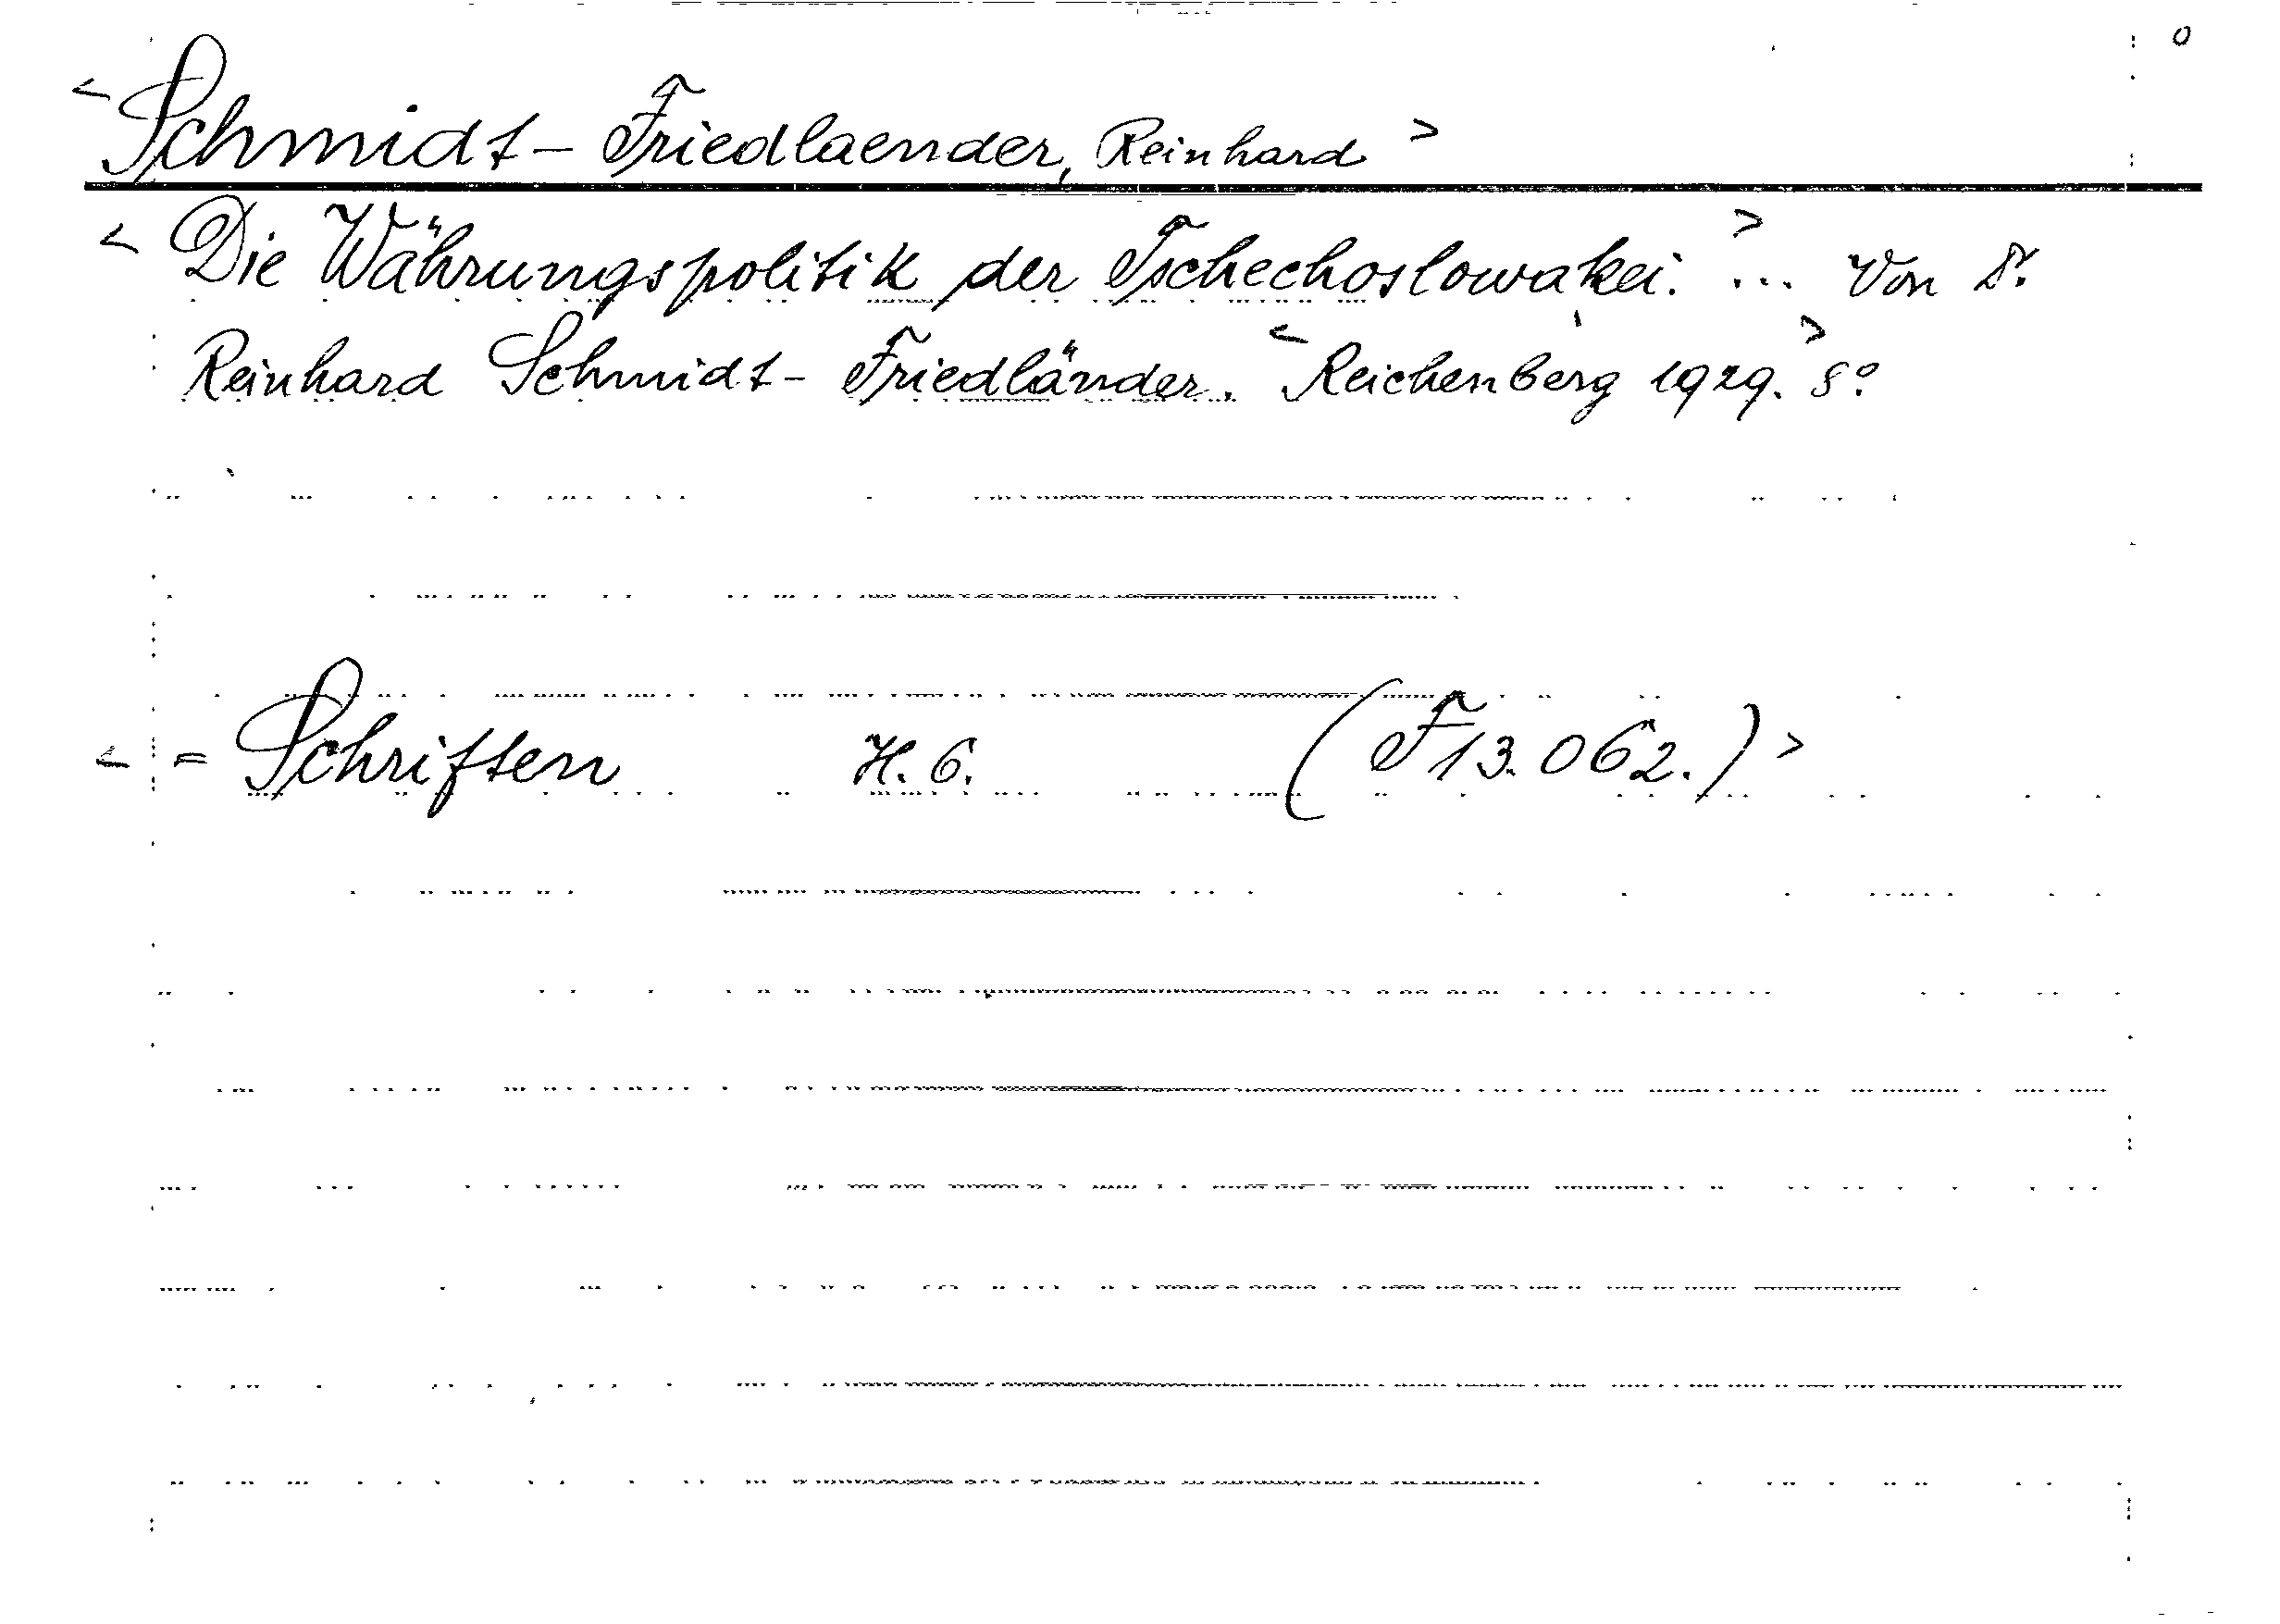 o
< Schmidt-Friedlaender, Reinhard >
< Die Währungspolitik der Tschechoslowakei. > ... Von Dr.
Reinhard Schmidt-Friedländer. < Reichenberg 1929. > 8°
< = Schriften H. 6. (F 13.062.) >